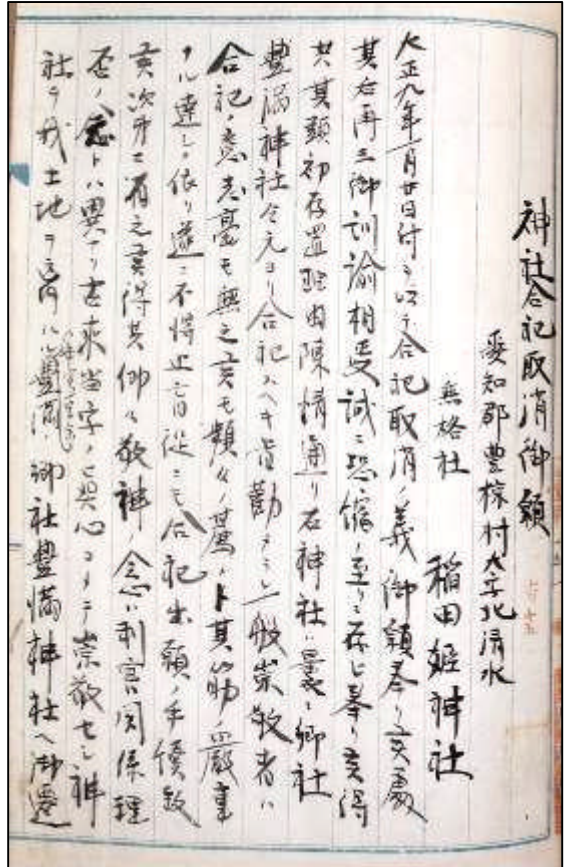 神社合祀取消御願
愛知郡豊椋村大字北清水
無格社　稲田姫神社
大正九年一月廿日付ヲ以テ合祀取消ノ義御願奉リ候処
其右再三御訓諭相受誠ニ恐縮ノ至リニ存シ奉リ候得
共其願初存置理由陳情通リ右神社ハ曩ニ郷社
豊満神社合元ヨリ合祀スヘキ旨勧メラレシ一般崇敬者ハ
合祀ノ意志毫モ無之候モ類々ノ篤ト其筋ノ厳重
ナル達シニ依リ遂ニ不得止盲従ニモ合祀出願ノ手続致
候次第ニ有之候得共仰々敬神ノ念ハ利害ニ関係理
否ノ念トハ異ナリ古来当字ノ民心コメテ崇敬セシ神
社ヲ我土地ヲ離ルル豊満郷社豊満神社ヘ御遷